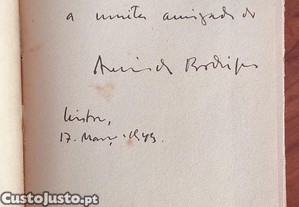 a muita amizade do
Armindo Rodrigues
Lisboa,
17. Março 1949.
CustoJusto.pt